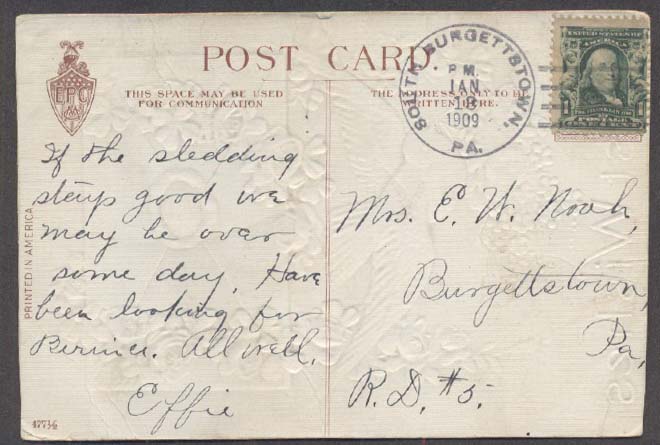 POST CARD
THIS SPACE MAY BE USED
FOR COMMUNICATION
THE ADDRESS ONLY TO BE
WRITTEN HERE.
SOUTH BURGETTSTOWN,
P M.
JAN
18
1909
PA.
UNITED STATES OF
AMERICA
1
POSTAGE
1
EPC
PRINTED IN AMERICA
If the sledding
stays good we
may be over
some day. Have
been looking for
All well.
Effie
Mrs. E. W. Noah,
Burgettstown,
Pa,
R.D. #5.